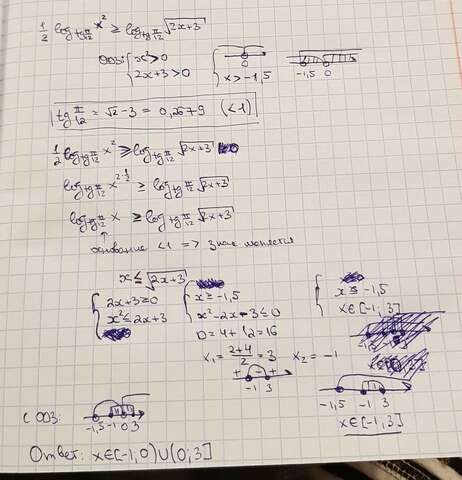 1/2 log_{tg π/12} x² ≥ log_{tg π/12} √(2x+3)
ООЗ: { x² > 0
2x+3 > 0
0
x > -1,5
-1,5 0
tg π/12 = √2 - 3 = 0,2679 (<1)
1/2 log_{tg π/12} x² ≥ log_{tg π/12} √(2x+3)
log_{tg π/12} x^{2·1/2} ≥ log_{tg π/12} √(2x+3)
log_{tg π/12} x ≥ log_{tg π/12} √(2x+3)
основание <1 => знак меняется
x ≤ √(2x+3)
{ 2x+3 ≥ 0
x² ≤ 2x+3
{ x ≥ -1,5
x² - 2x - 3 ≤ 0
D = 4 + 12 = 16
x₁ = (2+4)/2 = 3 x₂ = -1
+ - +
-1 3
-1,5
x ∈ [-1, 3]
-1,5 -1 3
x ∈ [-1, 3]
С ООЗ:
-1,5 -1 0 3
Ответ: x ∈ [-1; 0) ∪ (0; 3]